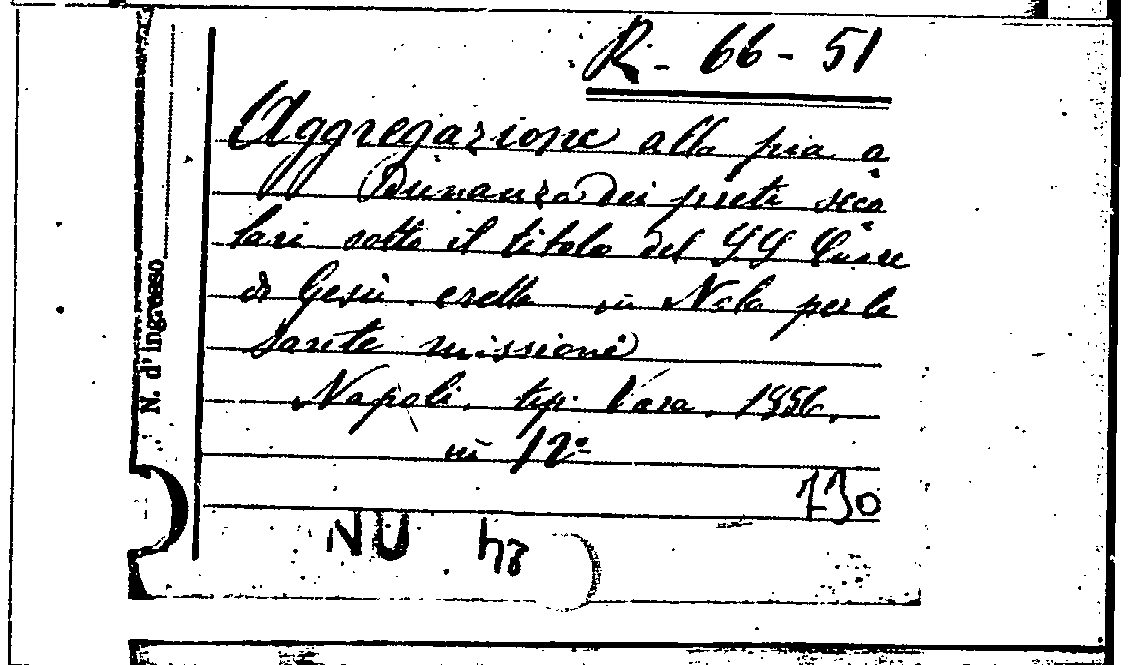 R. - 66 - 51
Aggregazione alla pia a
Dunanza dei preti seco
lari sotto il titolo del SS Cuore
di Gesù eretta in Nola per le
Sante missioni
Napoli. tip. Vara. 1856.
in 12º
730
NU
N. d'ingresso